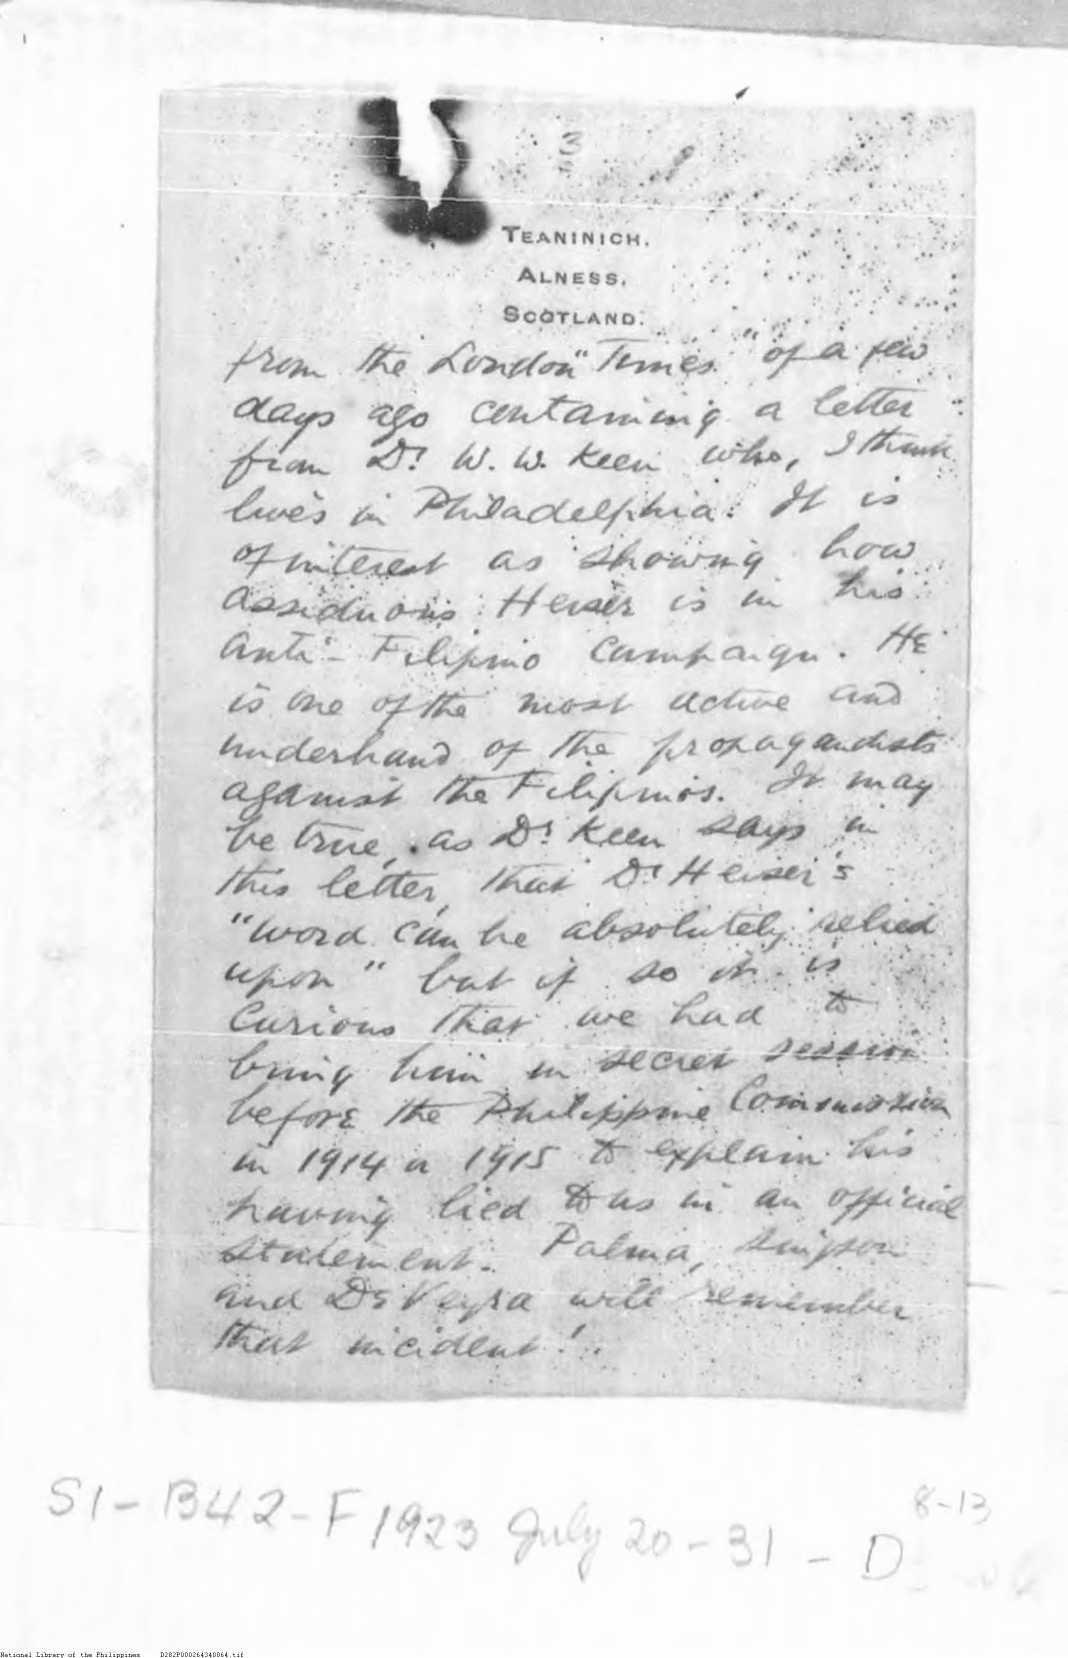 3
TEANINICH,
ALNESS,
SCOTLAND.
from the London "Times" of a few
days ago containing a letter
from Dr. W. W. Keen who, I think
lives in Philadelphia. It is
of interest as showing how
assiduous Heiser is in his
anti-Filipino campaign. He
is one of the most active and
underhand of the propagandists
against the Filipinos. It may
be true, as Dr Keen says in
this letter, that Dr Heiser's
"word can be absolutely relied
upon" but if so it is
curious that we had to
bring him in secret session
before the Philippine Commission
in 1914 or 1915 to explain his
having lied to us in an official
statement. Palma, Simpson
and De Veyra will remember
that incident!
S1-B42-F1923 July 20-31-D
8-13
National Library of the Philippines D282P000264340064.tif